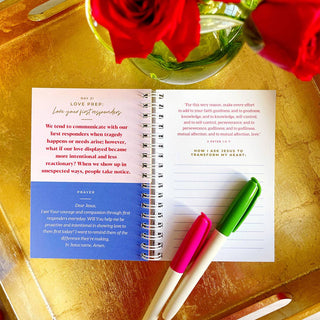 DAY 21
LOVE PREP:
Love your first responders
We tend to communicate with our
first responders when tragedy
happens or needs arise; however,
what if our love displayed became
more intentional and less
reactionary? When we show up in
unexpected ways, people take notice.
PRAYER
Dear Jesus,
I see Your courage and compassion through first
responders everyday. Will You help me be
proactive and intentional in showing love to
them first today? I want to remind them of the
difference they're making.
In Jesus name, Amen.
"For this very reason, make every effort
to add to your faith goodness; and to goodness,
knowledge; and to knowledge, self-control;
and to self-control, perseverance; and to
perseverance, godliness; and to godliness,
mutual affection; and to mutual affection, love."
2 PETER 1:5-7
HOW I ASK JESUS TO
TRANSFORM MY HEART: